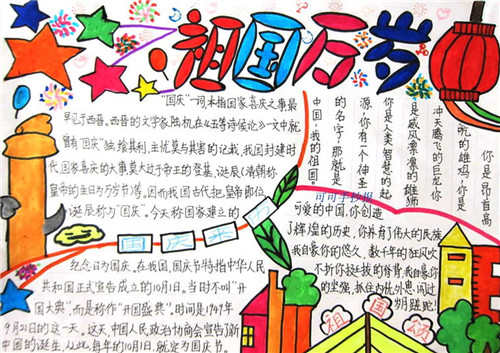 祖国万岁
"国庆"一词,本指国家喜庆之事最
早见于西晋。西晋的文学家陆机在《五等诸侯论》一文中就
曾有"国庆"独飨其利,主忧莫与其害的记载,我国封建时
代国家喜庆的大事莫大过于帝王的登基,诞辰(清朝称
皇帝的生日为万岁节)等。因而我国古代把皇帝即位、
诞辰称为"国庆"。今天称国家建立的
国庆来历
纪念日为国庆。在我国,国庆节特指中华人民
共和国正式告成立的10月1日。当时不叫"开
国大典",而是称作"开国盛典"。时间是1949年
9月21日的这一天。这天,中国人民政治协商会宣告了新
中国的诞生,从此,每年的10月1日,就定为国庆节。
你是昂首高
吭的雄鸡,你是
冲天腾飞的巨龙,你
是威风凛凛的雄师
你是人类智慧的起
源,你有一个神圣
的名字,那就是
中国,我的祖国。
可可手抄报
可爱的中国,你创造
了辉煌的历史,你养育了伟大的民族
我自豪你的悠久,数千年的狂风吹
不折你挺拔的脊背,我自豪你
的坚强,抵住内忧外患,闯过
岁月蹉跎!
祖国颂